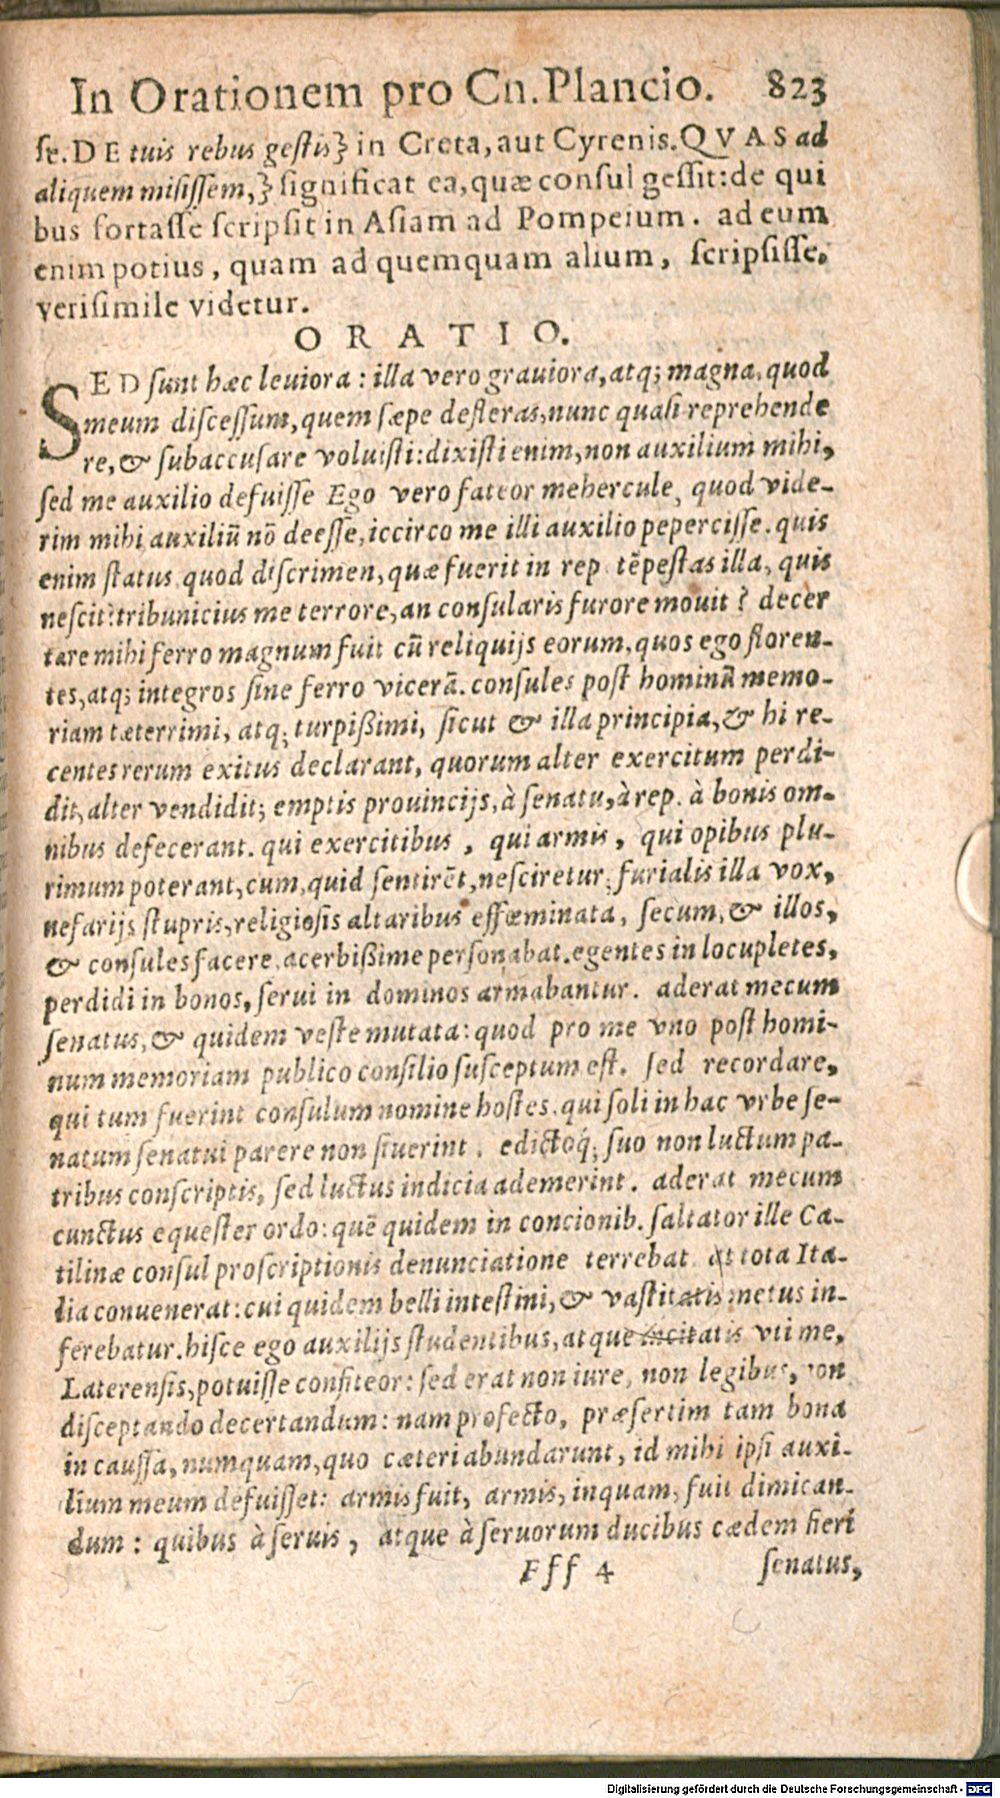 In Orationem pro Cn. Plancio. 823
se. DE tuis rebus gestis} in Creta, aut Cyrenis. QVAS ad
aliquem misissem,} significat ea, quæ consul gessit: de qui
bus fortasse scripsit in Asiam ad Pompeium. ad eum
enim potius, quam ad quemquam alium, scripsisse,
verisimile videtur.
ORATIO.
SED sunt hæc leuiora: illa vero grauiora, atq; magna, quod
meum discessum, quem sæpe defleras, nunc quasi reprehende
re, & subaccusare voluisti: dixisti enim, non auxilium mihi,
sed me auxilio defuisse Ego vero fateor mehercule, quod vide-
rim mihi auxiliū nō deesse, iccirco me illi auxilio pepercisse. quis
enim status quod discrimen, quæ fuerit in rep. tēpestas illa, quis
nescit? tribunicius me terrore, an consularis furore mouit? decer
tare mihi ferro magnum fuit cū reliquijs eorum, quos ego floren-
tes, atq; integros sine ferro vicerā. consules post hominū memo-
riam tæterrimi, atq; turpißimi, sicut & illa principia, & hi re-
centes rerum exitus declarant, quorum alter exercitum perdi-
dit, alter vendidit; emptis prouincijs, à senatu, à rep. à bonis om-
nibus defecerant. qui exercitibus, qui armis, qui opibus plu-
rimum poterant, cum, quid sentirēt, nesciretur; furialis illa vox,
nefarijs stupris, religiosis altaribus effæminata, secum, & illos,
& consules facere, acerbißime personabat. egentes in locupletes,
perdidi in bonos, serui in dominos armabantur. aderat mecum
senatus, & quidem veste mutata: quod pro me vno post homi-
num memoriam publico consilio susceptum est. sed recordare,
qui tum fuerint consulum nomine hostes. qui soli in hac vrbe se-
natum senatui parere non siuerint. edictoq́; suo non luctum pa-
tribus conscriptis, sed luctus indicia ademerint. aderat mecum
cunctus equester ordo: quē quidem in concionib. saltator ille Ca-
tilinæ consul proscriptionis denunciatione terrebat. at tota Ita-
lia conuenerat: cui quidem belli intestini, & vastitatis metus in-
ferebatur. hisce ego auxilijs studentibus, atque incitatis vti me,
Laterensis, potuisse confiteor: sed erat non iure, non legibus, non
disceptando decertandum: nam profecto, præsertim tam bona
in caussa, numquam, quo cæteri abundarunt, id mihi ipsi auxi-
lium meum defuisset: armis fuit, armis, inquam, fuit dimican-
dum: quibus à seruis, atque à seruorum ducibus cædem fieri
Fff 4 senatus,
Digitalisierung gefördert durch die Deutsche Forschungsgemeinschaft - DFG